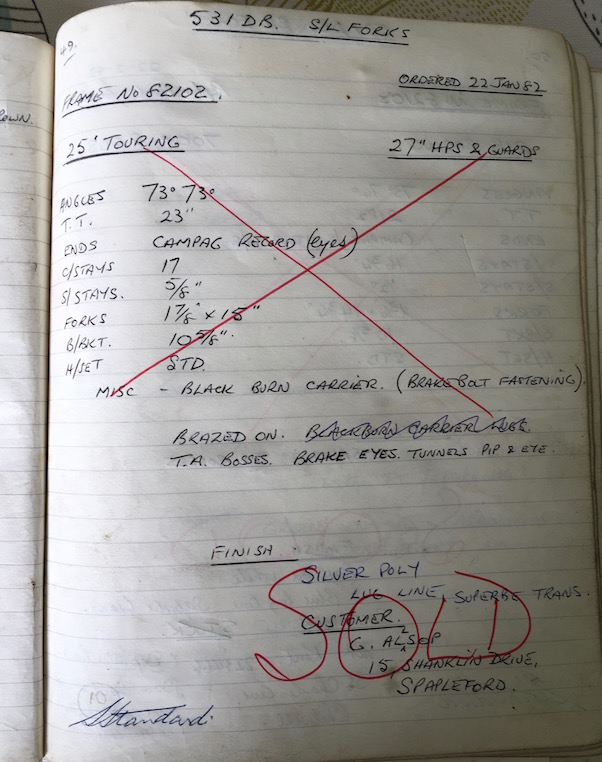 531 DB. S/L FORKS
49.
ORDERED 22 JAN 82
FRAME NO 82102.
25" TOURING
27" HPS & GUARDS
ANGLES 73° 73°
T.T. 23"
ENDS CAMPAG RECORD (eyes)
C/STAYS 17
S/STAYS. 5/8"
FORKS 1 7/8" x 15"
B/BKT. 10 5/8".
H/SET STD.
MISC - BLACK BURN CARRIER. (BRAKE BOLT FASTENING).
BRAZED ON. BLACKBURN CARRIER LUGS.
T.A. BOSSES. BRAKE EYES. TUNNELS PIP & EYE.
FINISH
SILVER POLY
LUG LINE, SUPERBE TRANS.
CUSTOMER.
G. ALSOP
15, SHANKLIN DRIVE,
SPAPLEFORD.
SOLD